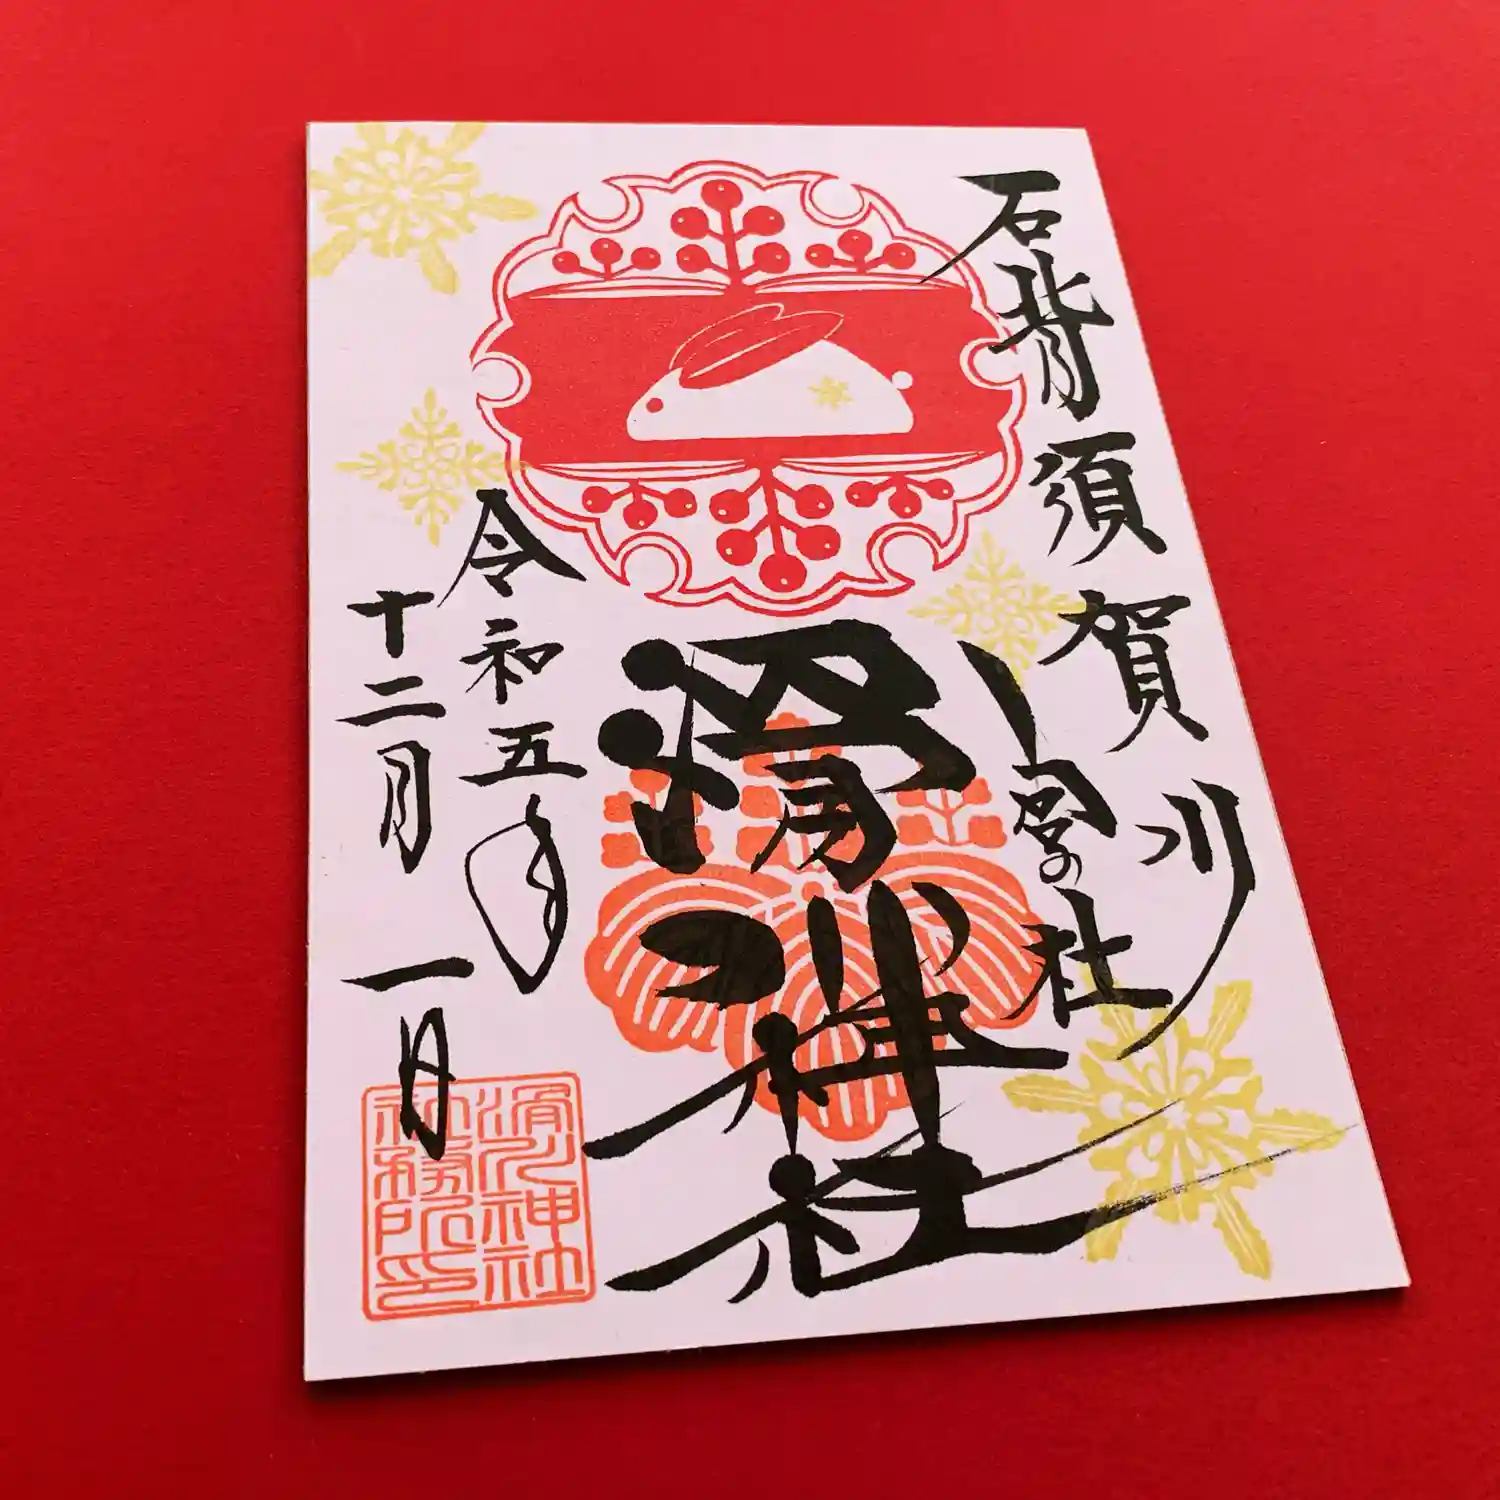 石背須賀川
宮の社
滑川神社
令和五年
十二月一日
滑川神社
社務所印